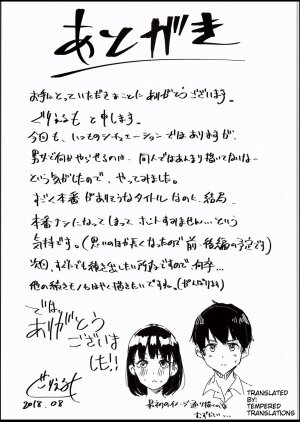 あとがき
お手にとっていただきまことにありがとうございます。
ぐりえるもと申します。
今回も、いつものシチュエーションではありますが、
という気がしたので、やってみました。
すごく本番がありそうなタイトルなのに、結局
本番ナシになってしまってホントすみません…という
気持です。(思いのほか長くなったので前・後編の予定です)
次回、すぐにでも続き出したい所存ですので何卒…
他の続きモノもはやく描きたいですね。(がんばります)
では
ありがとう
ございま
した!!
ぐりえるも
2018.08
最初のイメージ通り描くのは
むずかしい…
TRANSLATED
BY:
TEMPERED
TRANSLATIONS